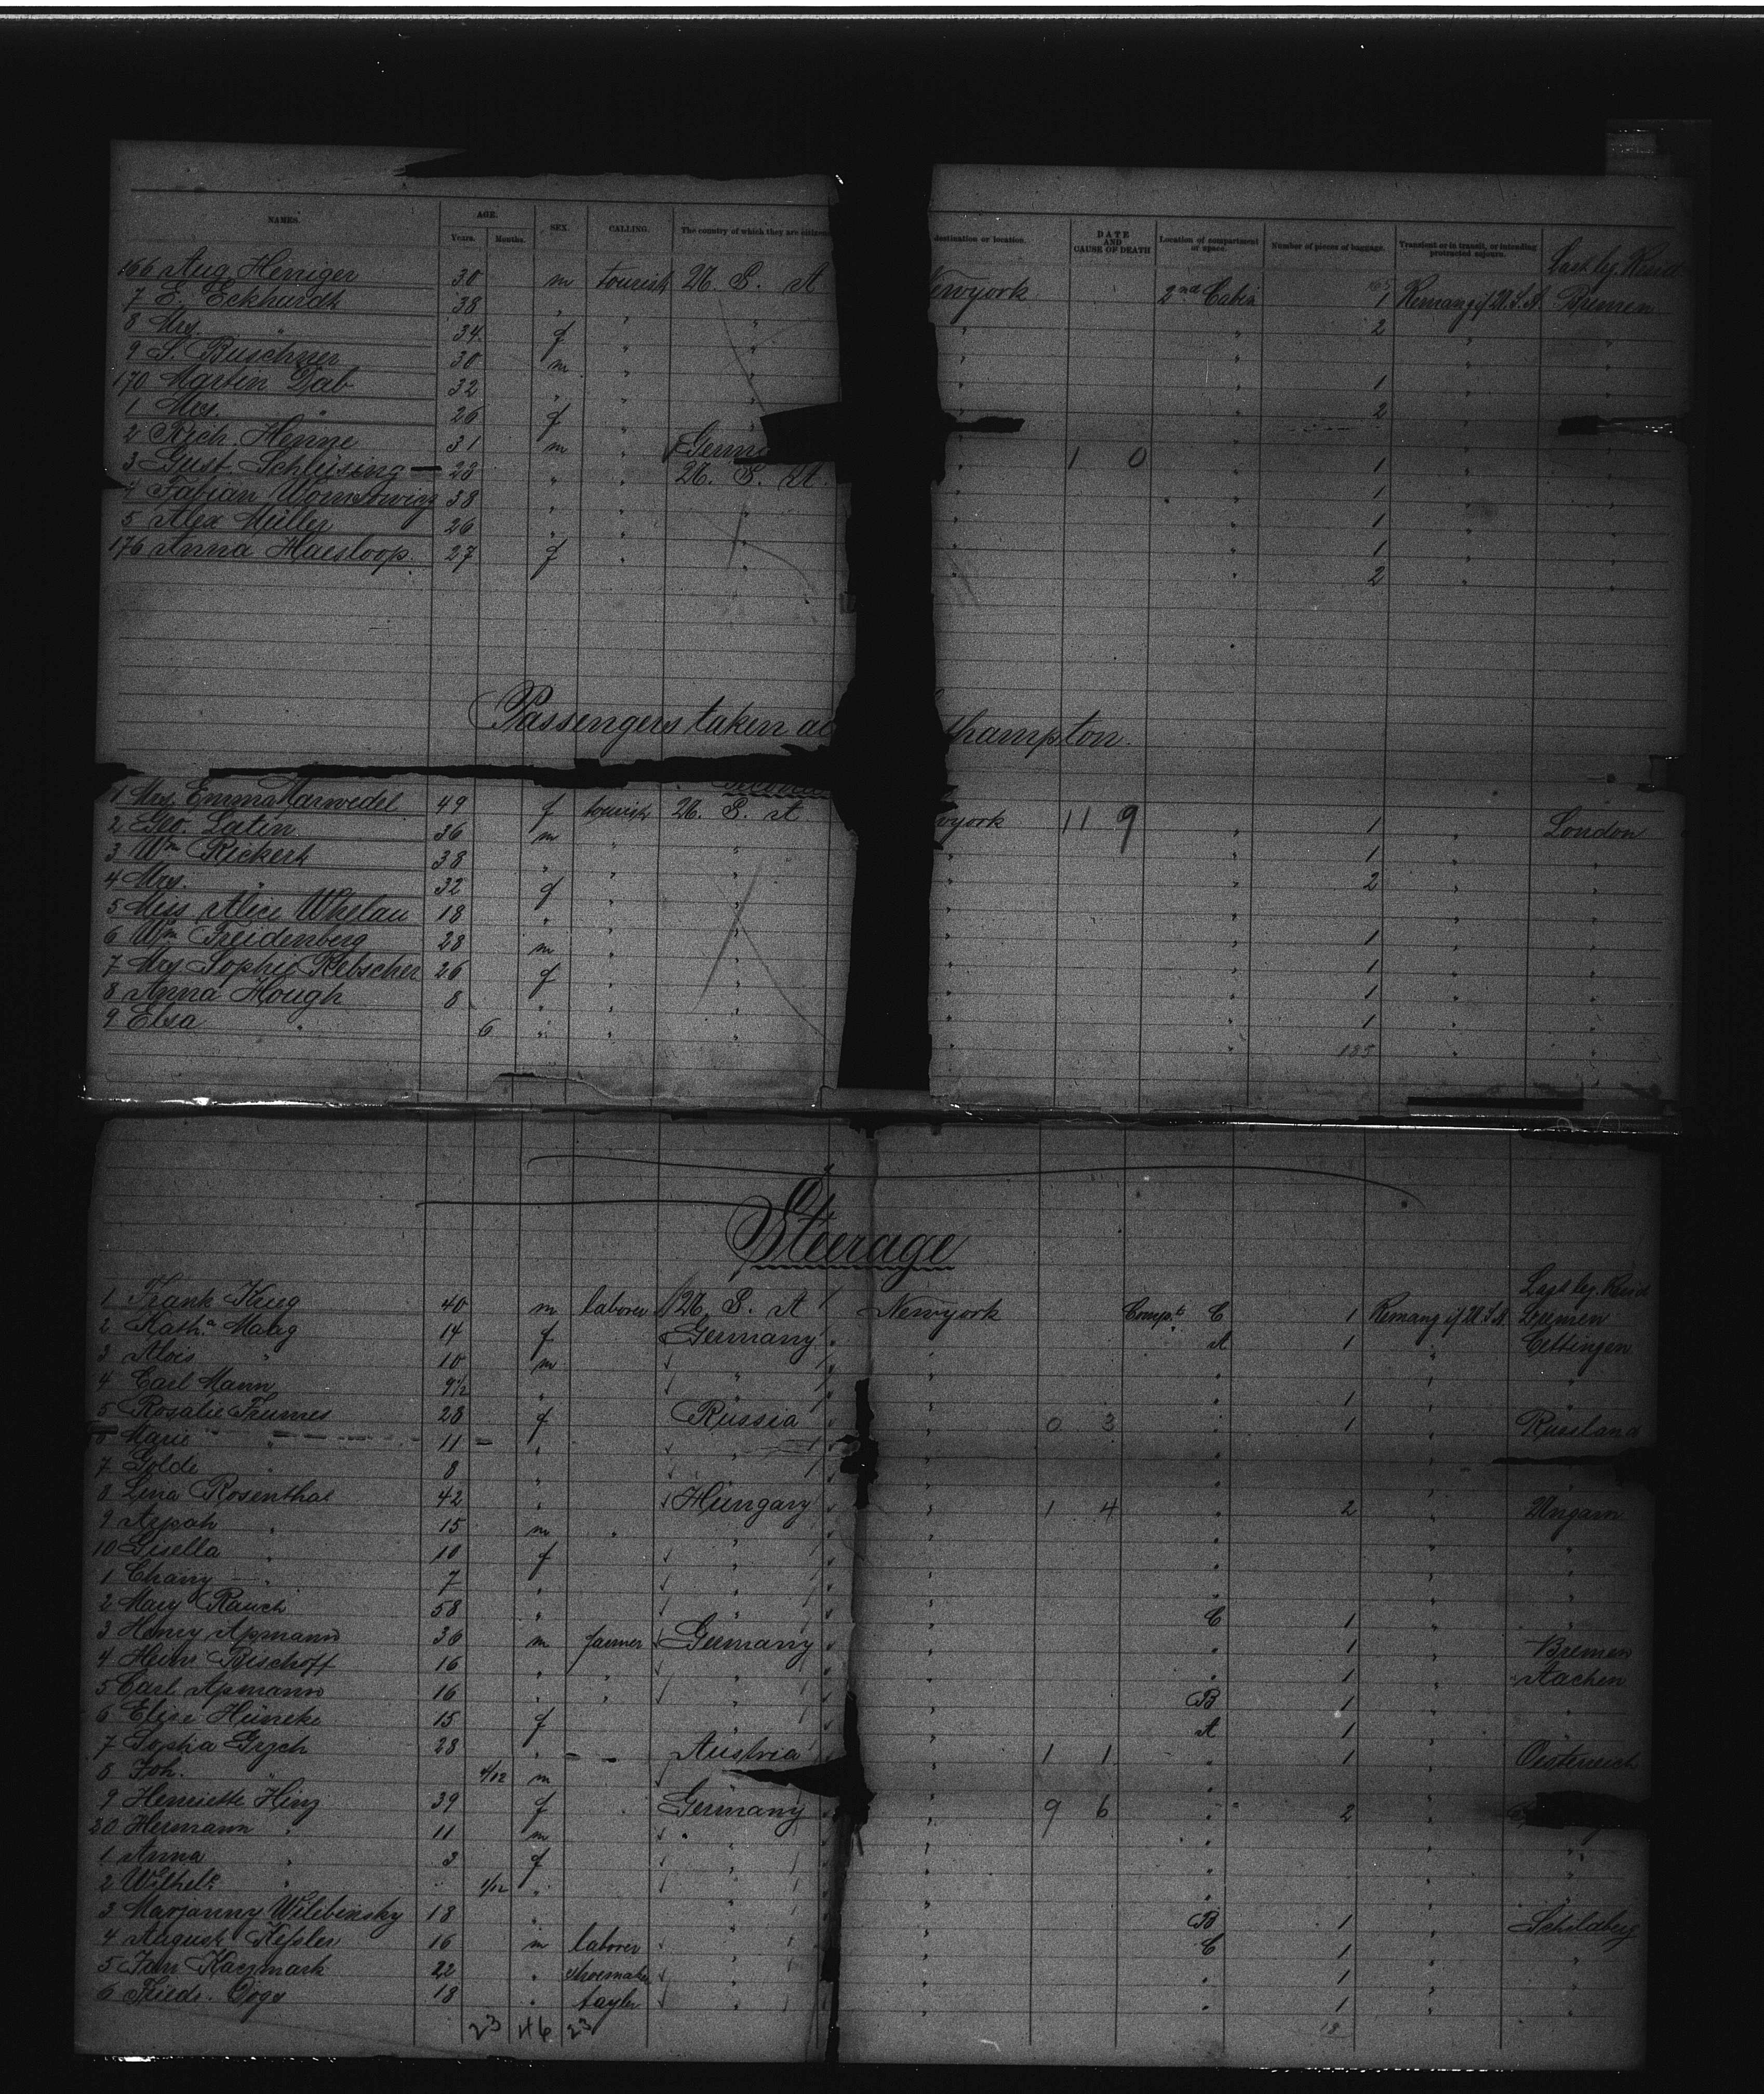 NAMES. AGE. Years. Months. SEX. CALLING. The country of which they are citizens destination or location. DATE AND CAUSE OF DEATH Location of compartment or space. Number of pieces of baggage. Transient or in transit, or intending protracted sojourn. Last leg. Resid.
166 Aug. Henniger 30 m tourist U. S. A Newyork 2nd Cabin 1 Remang if U.S.A. Bremen
7 E. Eckhardt 38 " " " " " 2 " "
8 Mrs. " 34 f " " "
9 S. Buschner 30 m " " " " 1 " "
170 Martin Dab 32 " " " " " 2 " "
1 Mrs. " 26 f " "
2 Rich. Henne 31 m " Germa " 1 0 " 1 " "
3 Gust. Schleising 23 " " U. S. A. " " 1 " "
4 Fabian 38 " " " " " 1 " "
5 Alex Müller 26 " " " " " 1 " "
176 Anna Haesloop. 27 f " " " " 2 " "
Passengers taken a thampton.
1 Mrs. Emma Marwedel 49 f tourist U. S. A york 11 9 " 1 " London
2 Geo. Latin 36 m " " " " 1 " "
3 Wm Rickert 38 " " " " " 2 " "
4 Mrs. " 32 f " " "
5 Miss Alice Whelan 18 " " " " " 1 " "
6 Wm Freidenberg 28 m " " " " 1 " "
7 Mrs Sophie Rebscher 26 f " " " " 1 " "
8 Anna Hough 8 " " " " " 1 " "
9 Elsa " 6 " " " "
135
Steerage
Last leg. Resid
1 Frank Krug 40 m laborer U. S. A Newyork Compt. C 1 Remang if U.S.A. Bremen
2 Katha. Maag 14 f Germany " A 1 " Gettingen
3 Alois " 10 m " " " " "
4 Carl Mann 9 1/2 " " " " 1 " "
5 Rosalie Trumes 28 f Russia " 0 3 " 1 " Russland
6 Marie " 11 " " " " "
7 Golde " 8 " " " " "
8 Lena Rosenthal 42 " Hungary " 1 4 " 2 " Ungarn
9 Arpah " 15 m " " " " " "
10 Gisella " 10 f " " " " "
1 Chany " 7 " " " " " "
2 Mary Rauch 58 " " " C 1 " "
3 Henry Apmann 36 m farmer Germany " " 1 " Bremen
4 Heinr. Bischoff 16 " " " " " 1 " Aachen
5 Carl Apmann 16 " " " " B 1 " "
6 Elise Heineke 15 f " " A 1 " "
7 Sophia Gych 28 " Austria " 1 1 " 1 " Oesterreich
8 Joh. " 4/12 m "
9 Henriette Hinz 39 f Germany " 9 6 " 2 "
20 Hermann " 11 m " " " " "
1 Anna " 3 f " " " " "
2 Wilhel. " 1/12 " " " " " "
3 Marjanny Wilebinsky 18 " " " B 1 " Schildberg
4 August Kessler 16 m laborer " " C 1 " "
5 Jan Kaczmark 22 " shoemaker " " " 1 " "
6 Friedr. 18 " tayler " " " 1 " "
23 46 23 18